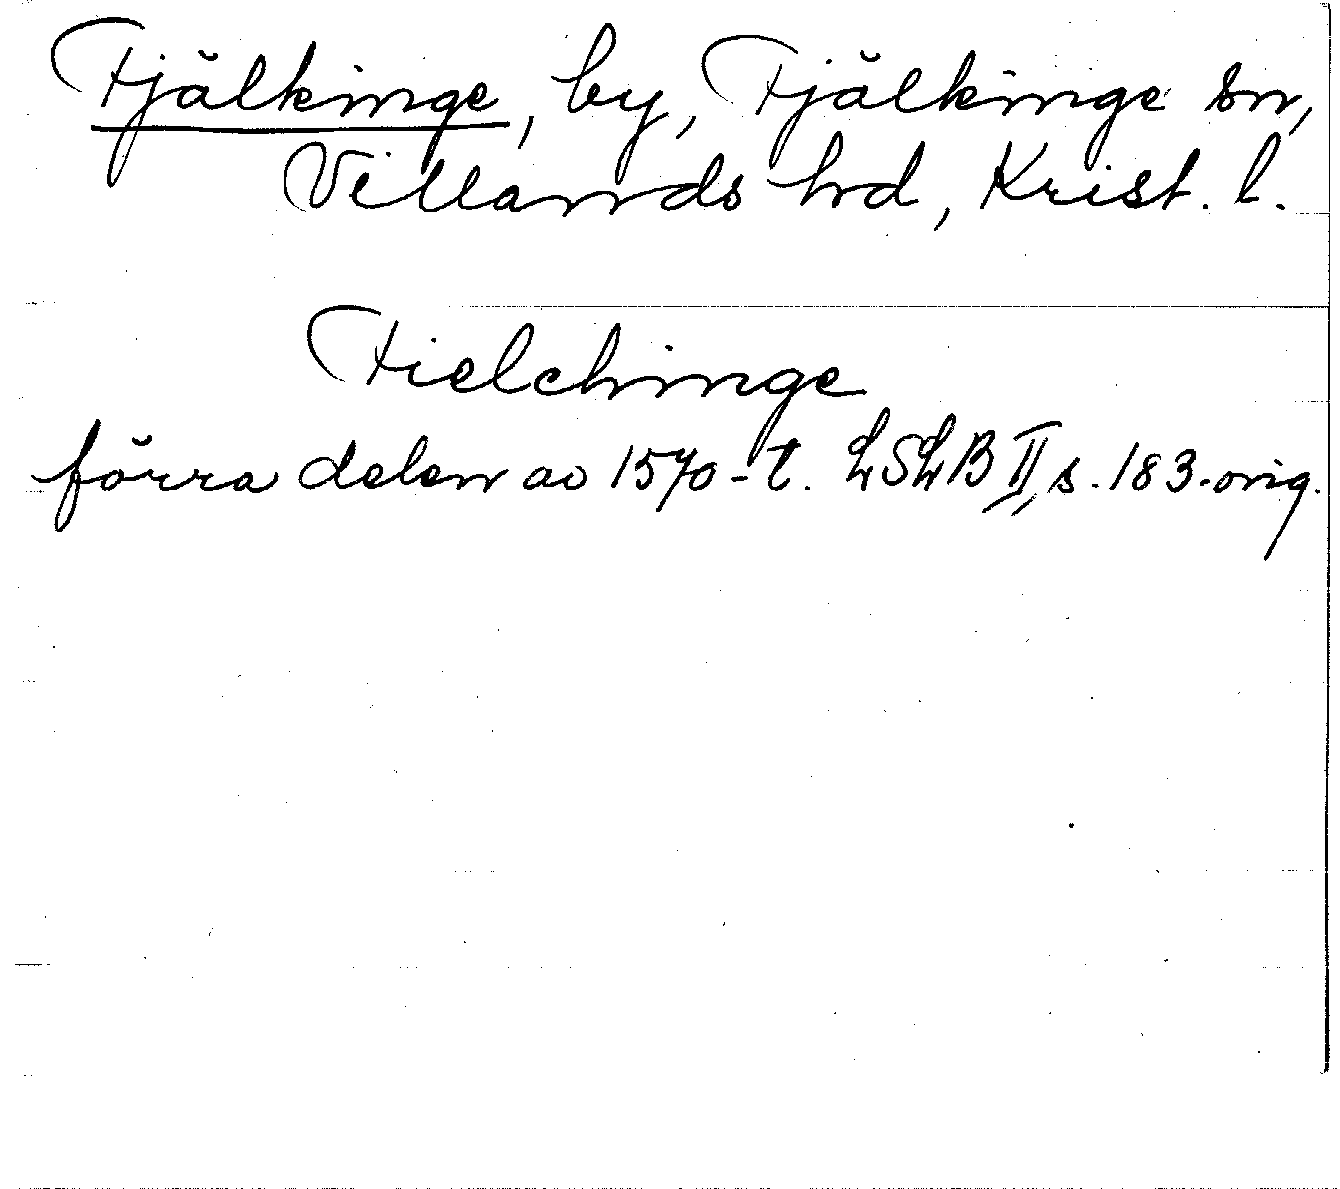 Fjälkinge, by, Fjälkinge sn,
Villands hd, Krist. l.
Fielchinge
förra delen av 1570-t. LSLB II, s. 183. orig.